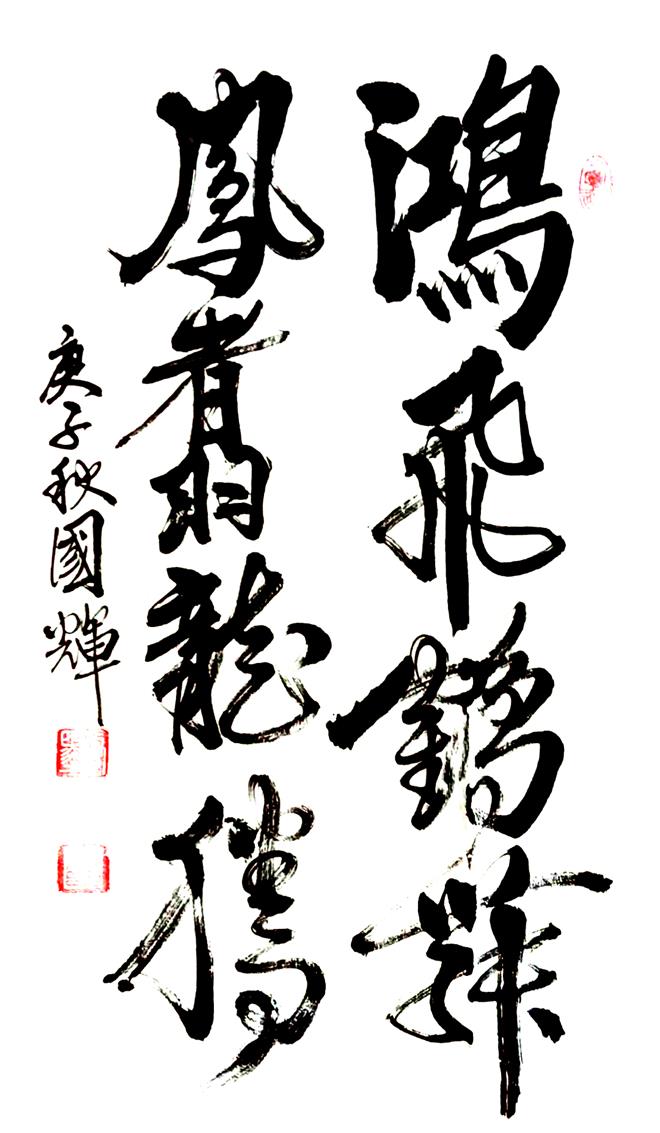 鴻飛鶴舞
鳳翥龍騰
庚子秋國輝